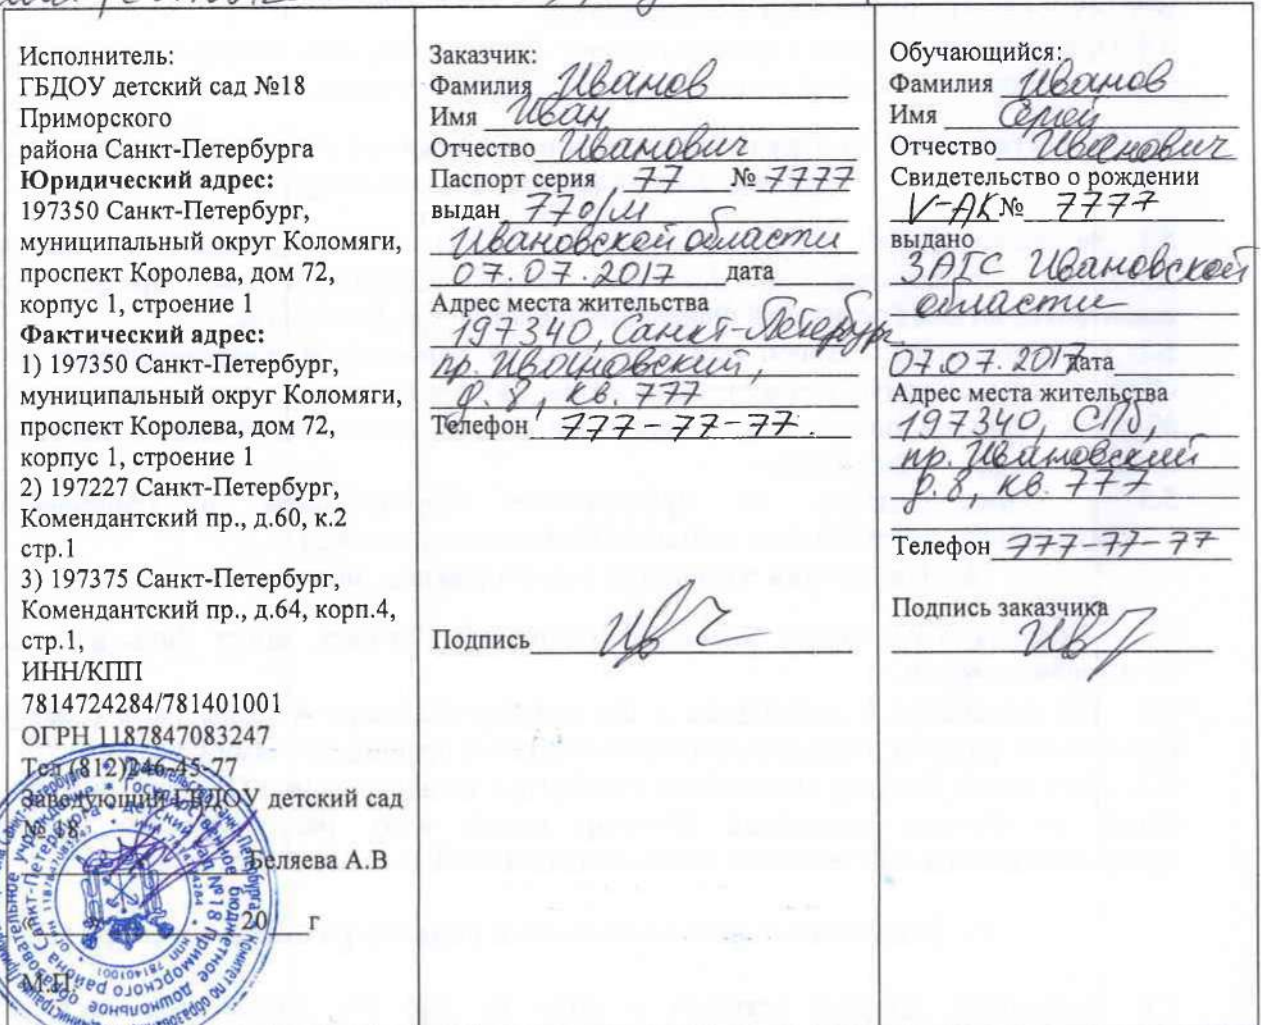 Исполнитель:
ГБДОУ детский сад №18
Приморского
района Санкт-Петербурга
Юридический адрес:
197350 Санкт-Петербург,
муниципальный округ Коломяги,
проспект Королева, дом 72,
корпус 1, строение 1
Фактический адрес:
1) 197350 Санкт-Петербург,
муниципальный округ Коломяги,
проспект Королева, дом 72,
корпус 1, строение 1
2) 197227 Санкт-Петербург,
Комендантский пр., д.60, к.2
стр.1
3) 197375 Санкт-Петербург,
Комендантский пр., д.64, корп.4,
стр.1,
ИНН/КПП
7814724284/781401001
ОГРН 1187847083247
Тел (812)246-45-77
Заведующий ГБДОУ детский сад
№ 18
Беляева А.В
« » 20 г
М.П.
Заказчик:
Фамилия Иванов
Имя Иван
Отчество Иванович
Паспорт серия 77 № 7777
выдан 77 о/м
Ивановской области
07.07.2017 дата
Адрес места жительства
197340, Санкт-Петербург
пр. Ивановский,
д. 8, кв. 777
Телефон 777-77-77.
Подпись
Обучающийся:
Фамилия Иванов
Имя Сергей
Отчество Иванович
Свидетельство о рождении
V-АК№ 7777
выдано
ЗАГС Ивановской
области
07.07.2017 дата
Адрес места жительства
197340, СПб,
пр. Ивановский
д. 8, кв. 777
Телефон 777-77-77
Подпись заказчика